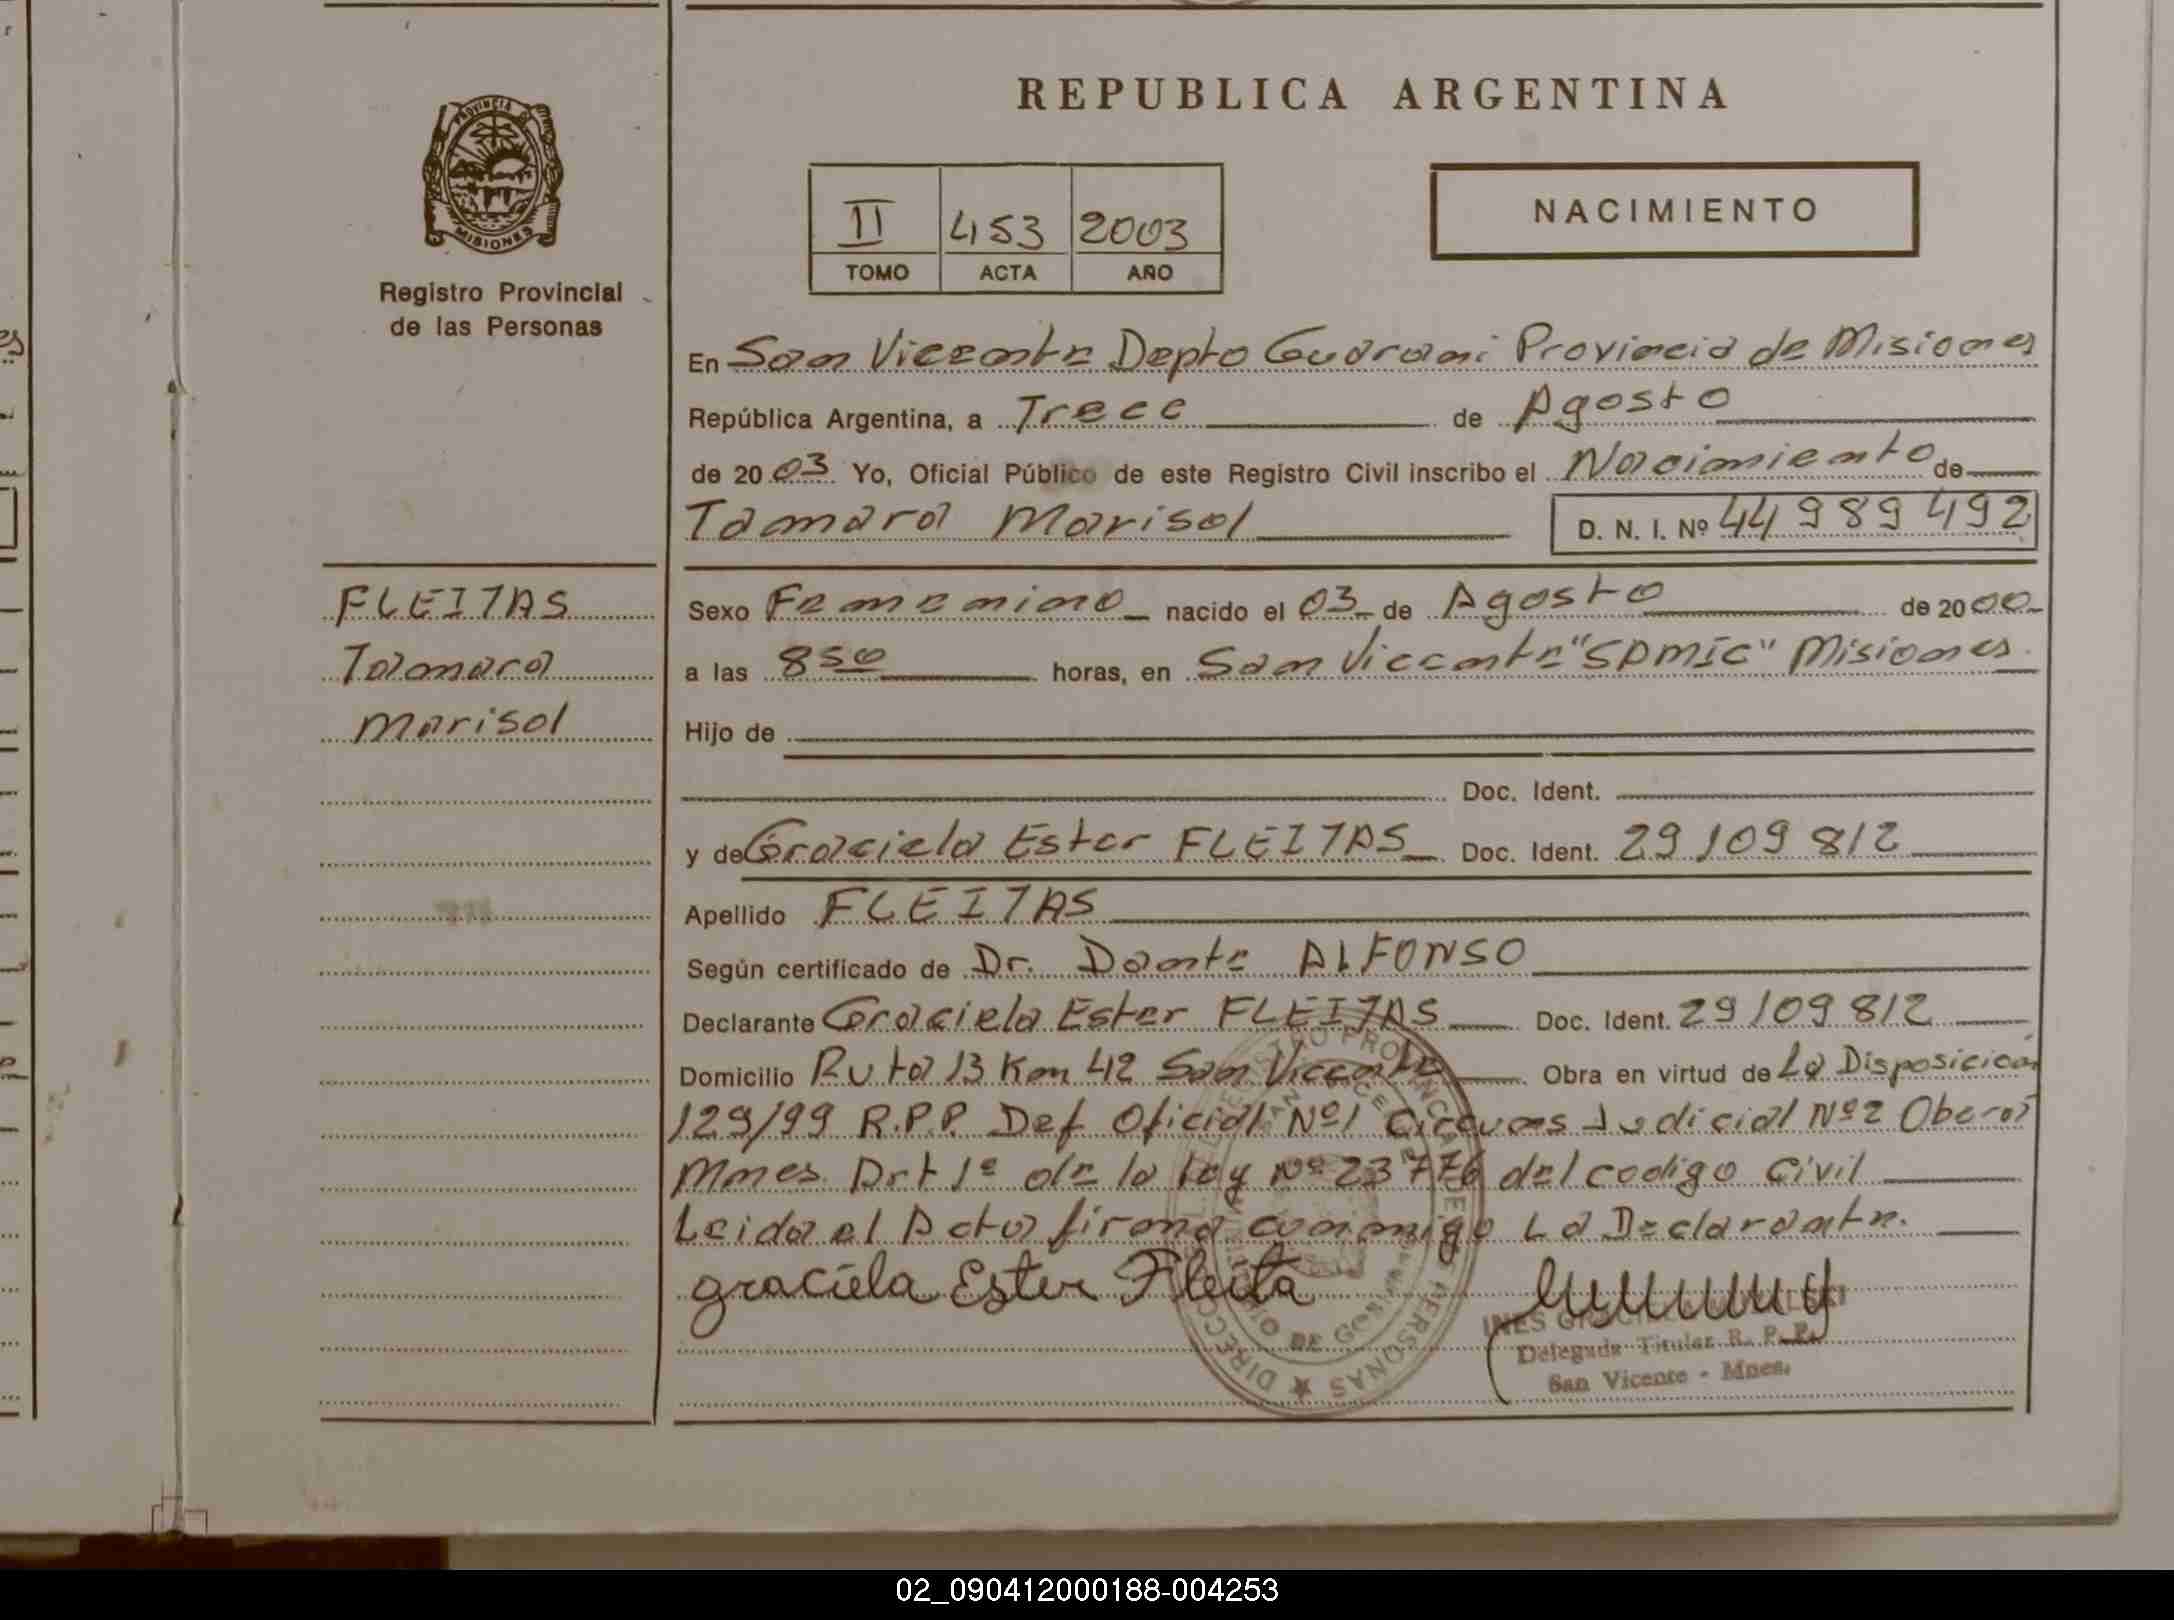 REPUBLICA ARGENTINA
PROVINCIA DE
MISIONES
Registro Provincial
de las Personas
II 453 2003
TOMO ACTA AÑO
NACIMIENTO
En San Vicente Depto Guarani Provincia de Misiones
República Argentina, a Trece de Agosto
de 2003 Yo, Oficial Público de este Registro Civil inscribo el Nacimiento de
Tamara Marisol D. N. I. Nº 44 989 492
FLEITAS
Tamara
Marisol
Sexo Femenino nacido el 03 de Agosto de 2000
a las 8 50 horas, en San Vicente "SAMIC" Misiones
Hijo de
Doc. Ident.
y de Graciela Ester FLEITAS Doc. Ident. 29 109 812
Apellido FLEITAS
Según certificado de Dr. Dante ALFONSO
Declarante Graciela Ester FLEITAS Doc. Ident. 29 109 812
Domicilio Ruta 13 Km 42 San Vicente Obra en virtud de La Disposición
129/99 R.P.P. Def Oficial Nº1 Circuns Judicial Nº2 Obera
Mnes. Art 1º de la ley Nº 23776 del codigo Civil
Leida el Acta firma conmigo La Declarante.
graciela Ester Fleita
INES
Delegada Titular R. P. P.
San Vicente - Mnes.
02_090412000188-004253